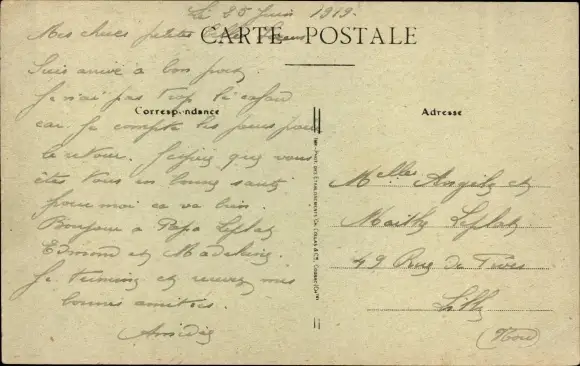 Le 25 Juin 1919.
Mes chères petites
CARTE POSTALE
Suis arrivé à bon port.
Je n'ai pas trop le cafard
Correspondance
Adresse
car je compte les jours pour
le retour. J'espère que vous
êtes tous en bonne santé
pour moi ça va bien.
Bonjour à Papa Leplat
Edmond et Madeleine.
Je termine et recevez mes
bonnes amitiés.
Amédée
Melles Angèle et
Leplat
49 Rue de
Lille
(Nord)